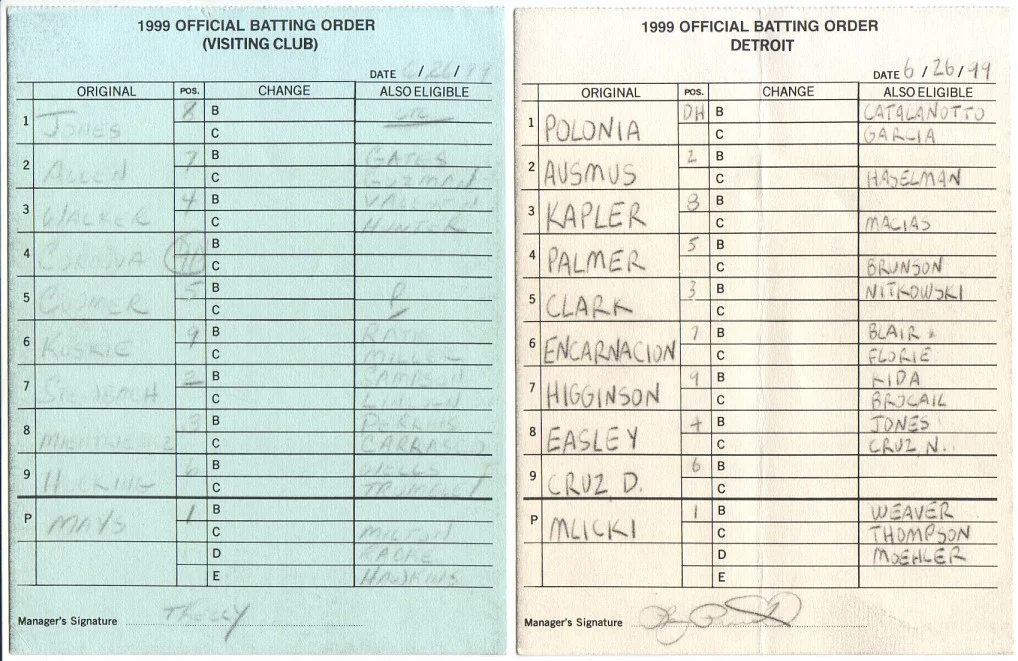 1999 OFFICIAL BATTING ORDER
(VISITING CLUB)
DATE 6/26/99
ORIGINAL POS. CHANGE ALSO ELIGIBLE
1 JONES 8 B
C
2 ALLEN 7 B GATES
C GUZMAN
3 WALKER 4 B VALENTIN
C HUNTER
4 CORDOVA B
C
5 COOMER 5 B P
C
6 KOSKIE 9 B RATH
C MILLER
7 STEINBACH 2 B SAMPSON
C LINCOLN
8 MIENTKIEWICZ 3 B PERKINS
C CARRASCO
9 HOCKING 6 B WELLS
C TROMBLEY
P MAYS 1 B
C MILTON
D RADKE
E HAWKINS
Manager's Signature TKelly
1999 OFFICIAL BATTING ORDER
DETROIT
DATE 6/26/99
ORIGINAL POS. CHANGE ALSO ELIGIBLE
1 POLONIA DH B CATALANOTTO
C GARCIA
2 AUSMUS 2 B
C HASELMAN
3 KAPLER 8 B
C MACIAS
4 PALMER 5 B
C BRUNSON
5 CLARK 3 B NITKOWSKI
C
6 ENCARNACION 7 B BLAIR
C FLORIE
7 HIGGINSON 9 B KIDA
C BROCAIL
8 EASLEY 4 B JONES
C CRUZ, N.
9 CRUZ D. 6 B
C
P MLICKI 1 B WEAVER
C THOMPSON
D MOEHLER
E
Manager's Signature